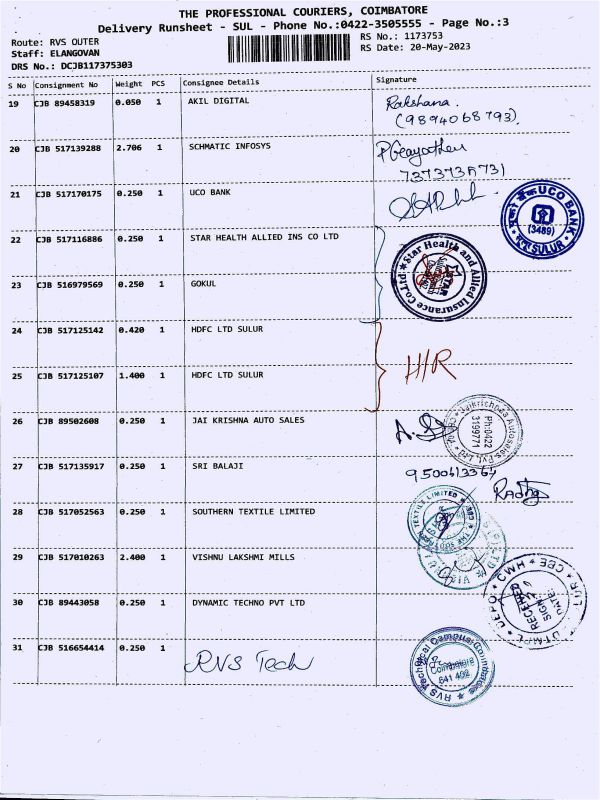 THE PROFESSIONAL COURIERS, COIMBATORE
Delivery Runsheet - SUL - Phone No.:0422-3505555 - Page No.:3
Route: RVS OUTER
RS No.: 1173753
Staff: ELANGOVAN
RS Date: 20-May-2023
DRS No.: DCJB117375303
S No Consignment No Weight PCS Consignee Details Signature
19 CJB 89458319 0.050 1 AKIL DIGITAL Rakshana.
(9894068793).
20 CJB 517139288 2.706 1 SCHMATIC INFOSYS
21 CJB 517170175 0.250 1 UCO BANK
UCO BANK
(3489)
SULUR
22 CJB 517116886 0.250 1 STAR HEALTH ALLIED INS CO LTD
Star Health and Allied Insurance Co.Ltd.
STAR
23 CJB 516979569 0.250 1 GOKUL
24 CJB 517125142 0.420 1 HDFC LTD SULUR
H/R
25 CJB 517125107 1.400 1 HDFC LTD SULUR
26 CJB 89502608 0.250 1 JAI KRISHNA AUTO SALES
Jaikrishnaa Autosales Pvt. Ltd
Ph:0422
3199771
27 CJB 517135917 0.250 1 SRI BALAJI
28 CJB 517052563 0.250 1 SOUTHERN TEXTILE LIMITED
TEXTILE LIMITED
29 CJB 517010263 2.400 1 VISHNU LAKSHMI MILLS
CWH * CBE
RECEIVED
SIGN
DATE:
30 CJB 89443058 0.250 1 DYNAMIC TECHNO PVT LTD
31 CJB 516654414 0.250 1 RVS Tech
RVS Technical Campus Coimbatore
Coimbatore
641 402